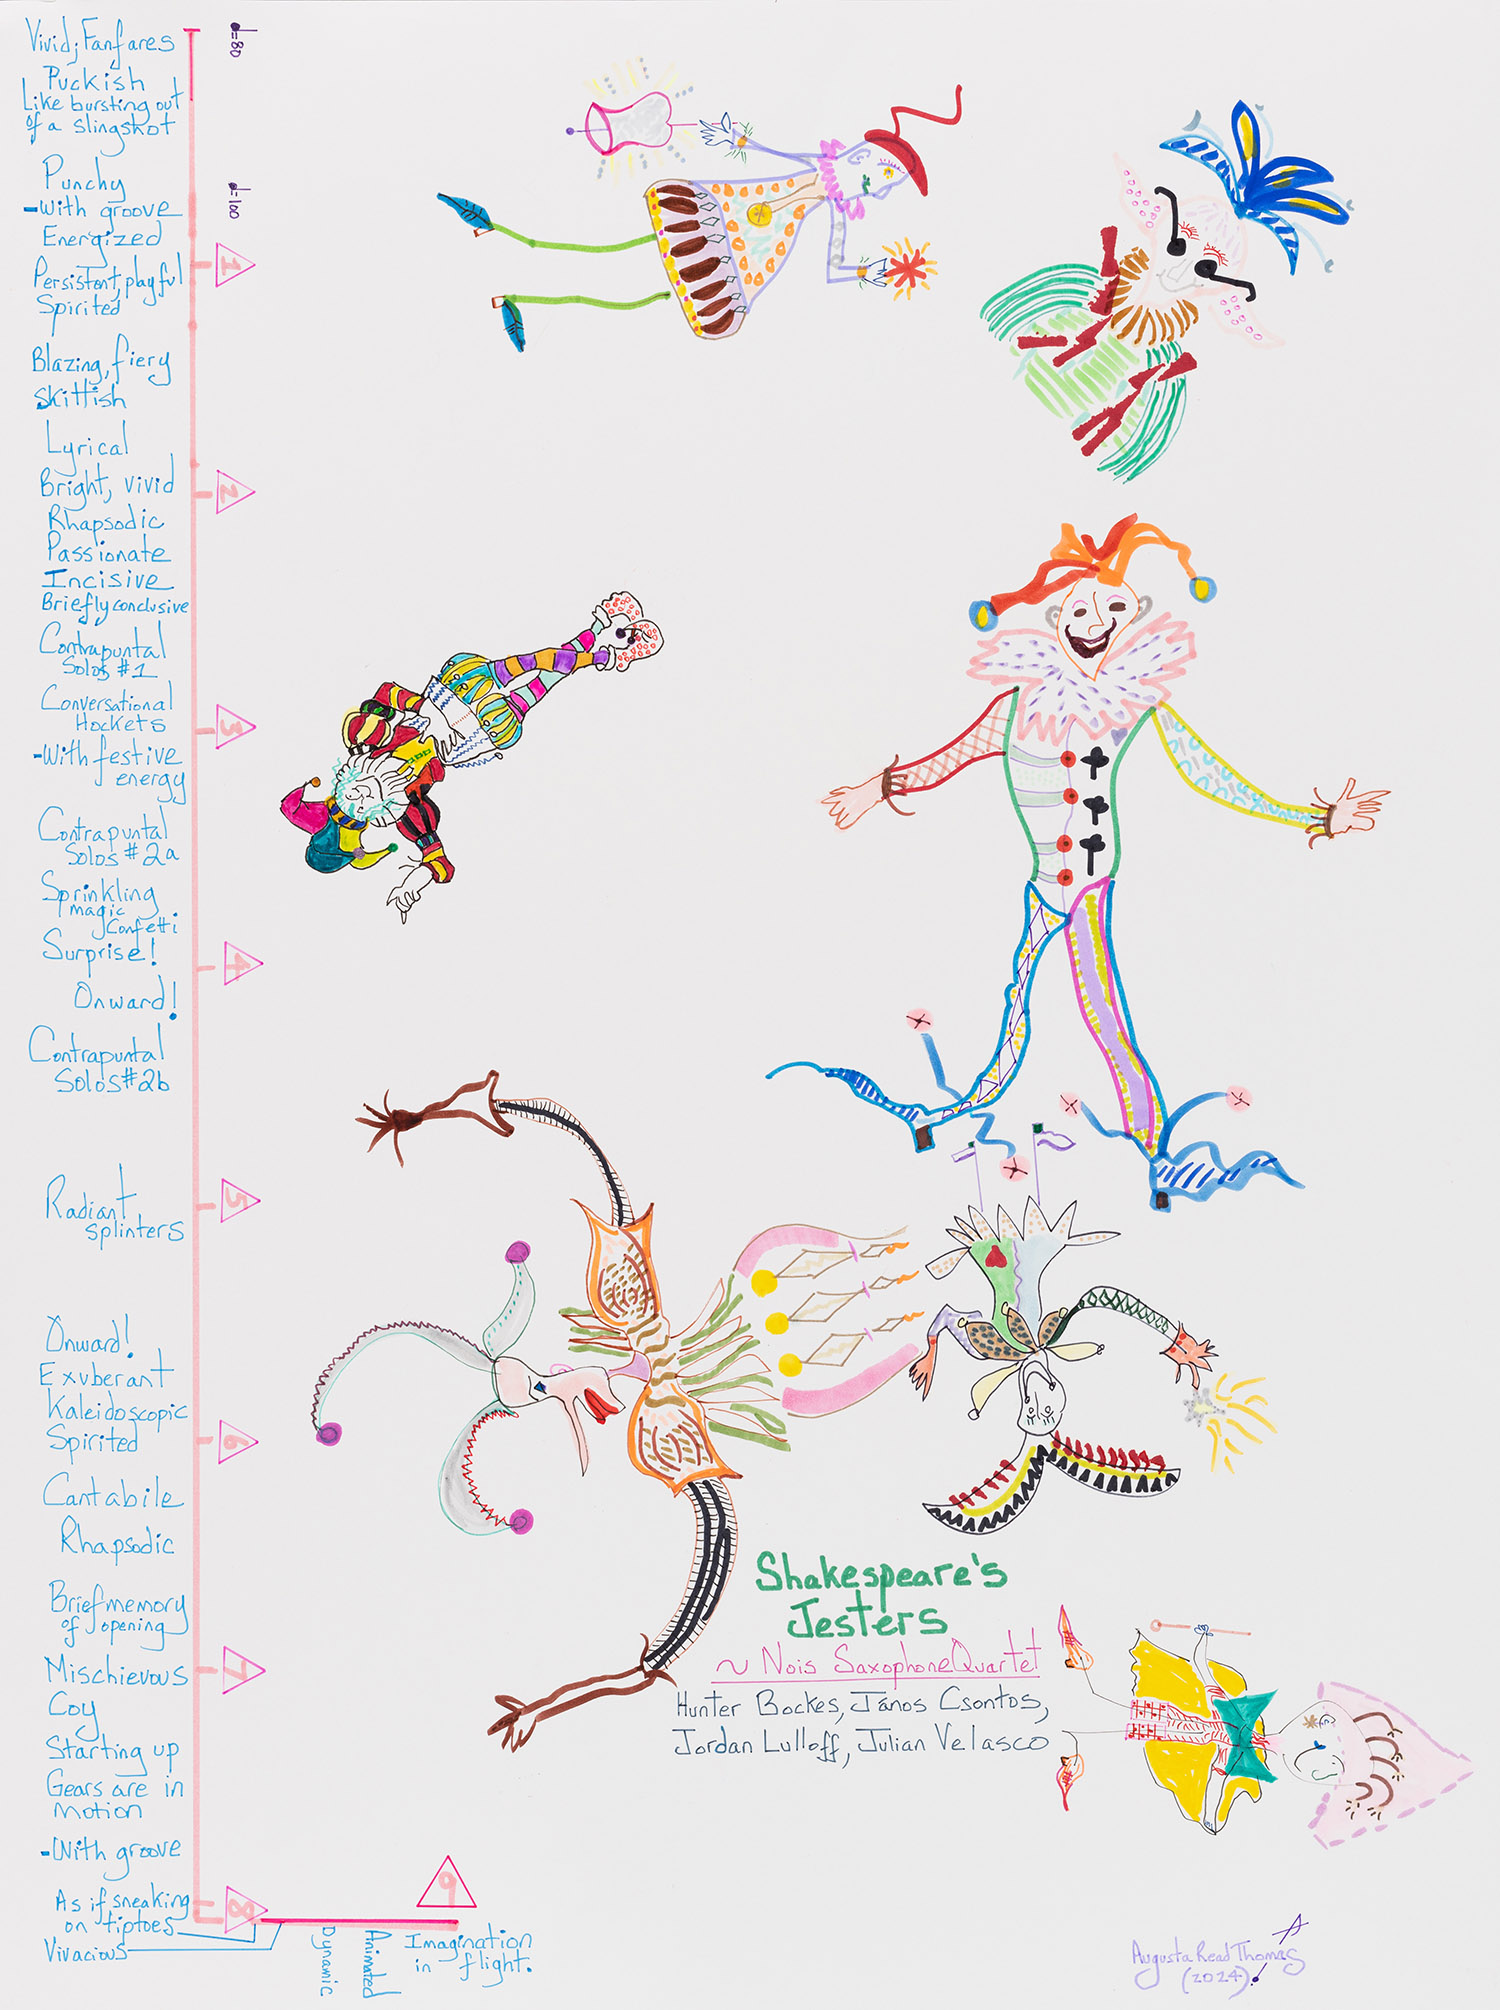 Vivid; Fanfares
♩=80
Puckish
Like bursting out
of a slingshot
♩=100
Punchy
-With groove
Energized
1
Persistent, playful
Spirited
Blazing, fiery
Skittish
Lyrical
Bright, vivid
2
Rhapsodic
Passionate
Incisive
Briefly conclusive
Contrapuntal
Solos #1
Conversational
Hockets
3
-With festive
energy
Contrapuntal
Solos #2a
Sprinkling
magic
Confetti
Surprise!
4
Onward!
Contrapuntal
Solos #2b
Radiant
splinters
5
Onward!
Exuberant
Kaleidoscopic
Spirited
6
Cantabile
Rhapsodic
Brief memory
of opening
Mischievous
7
Coy
Starting up
Gears are in
motion
-With groove
As if sneaking
on tiptoes
8
Vivacious
Dynamic
Animated
9
Imagination
in flight.
Shakespeare's
Jesters
~ Nois Saxophone Quartet
Hunter Bockes, János Csontos,
Jordan Lulloff, Julian Velasco
Augusta Read Thomas
(2024)